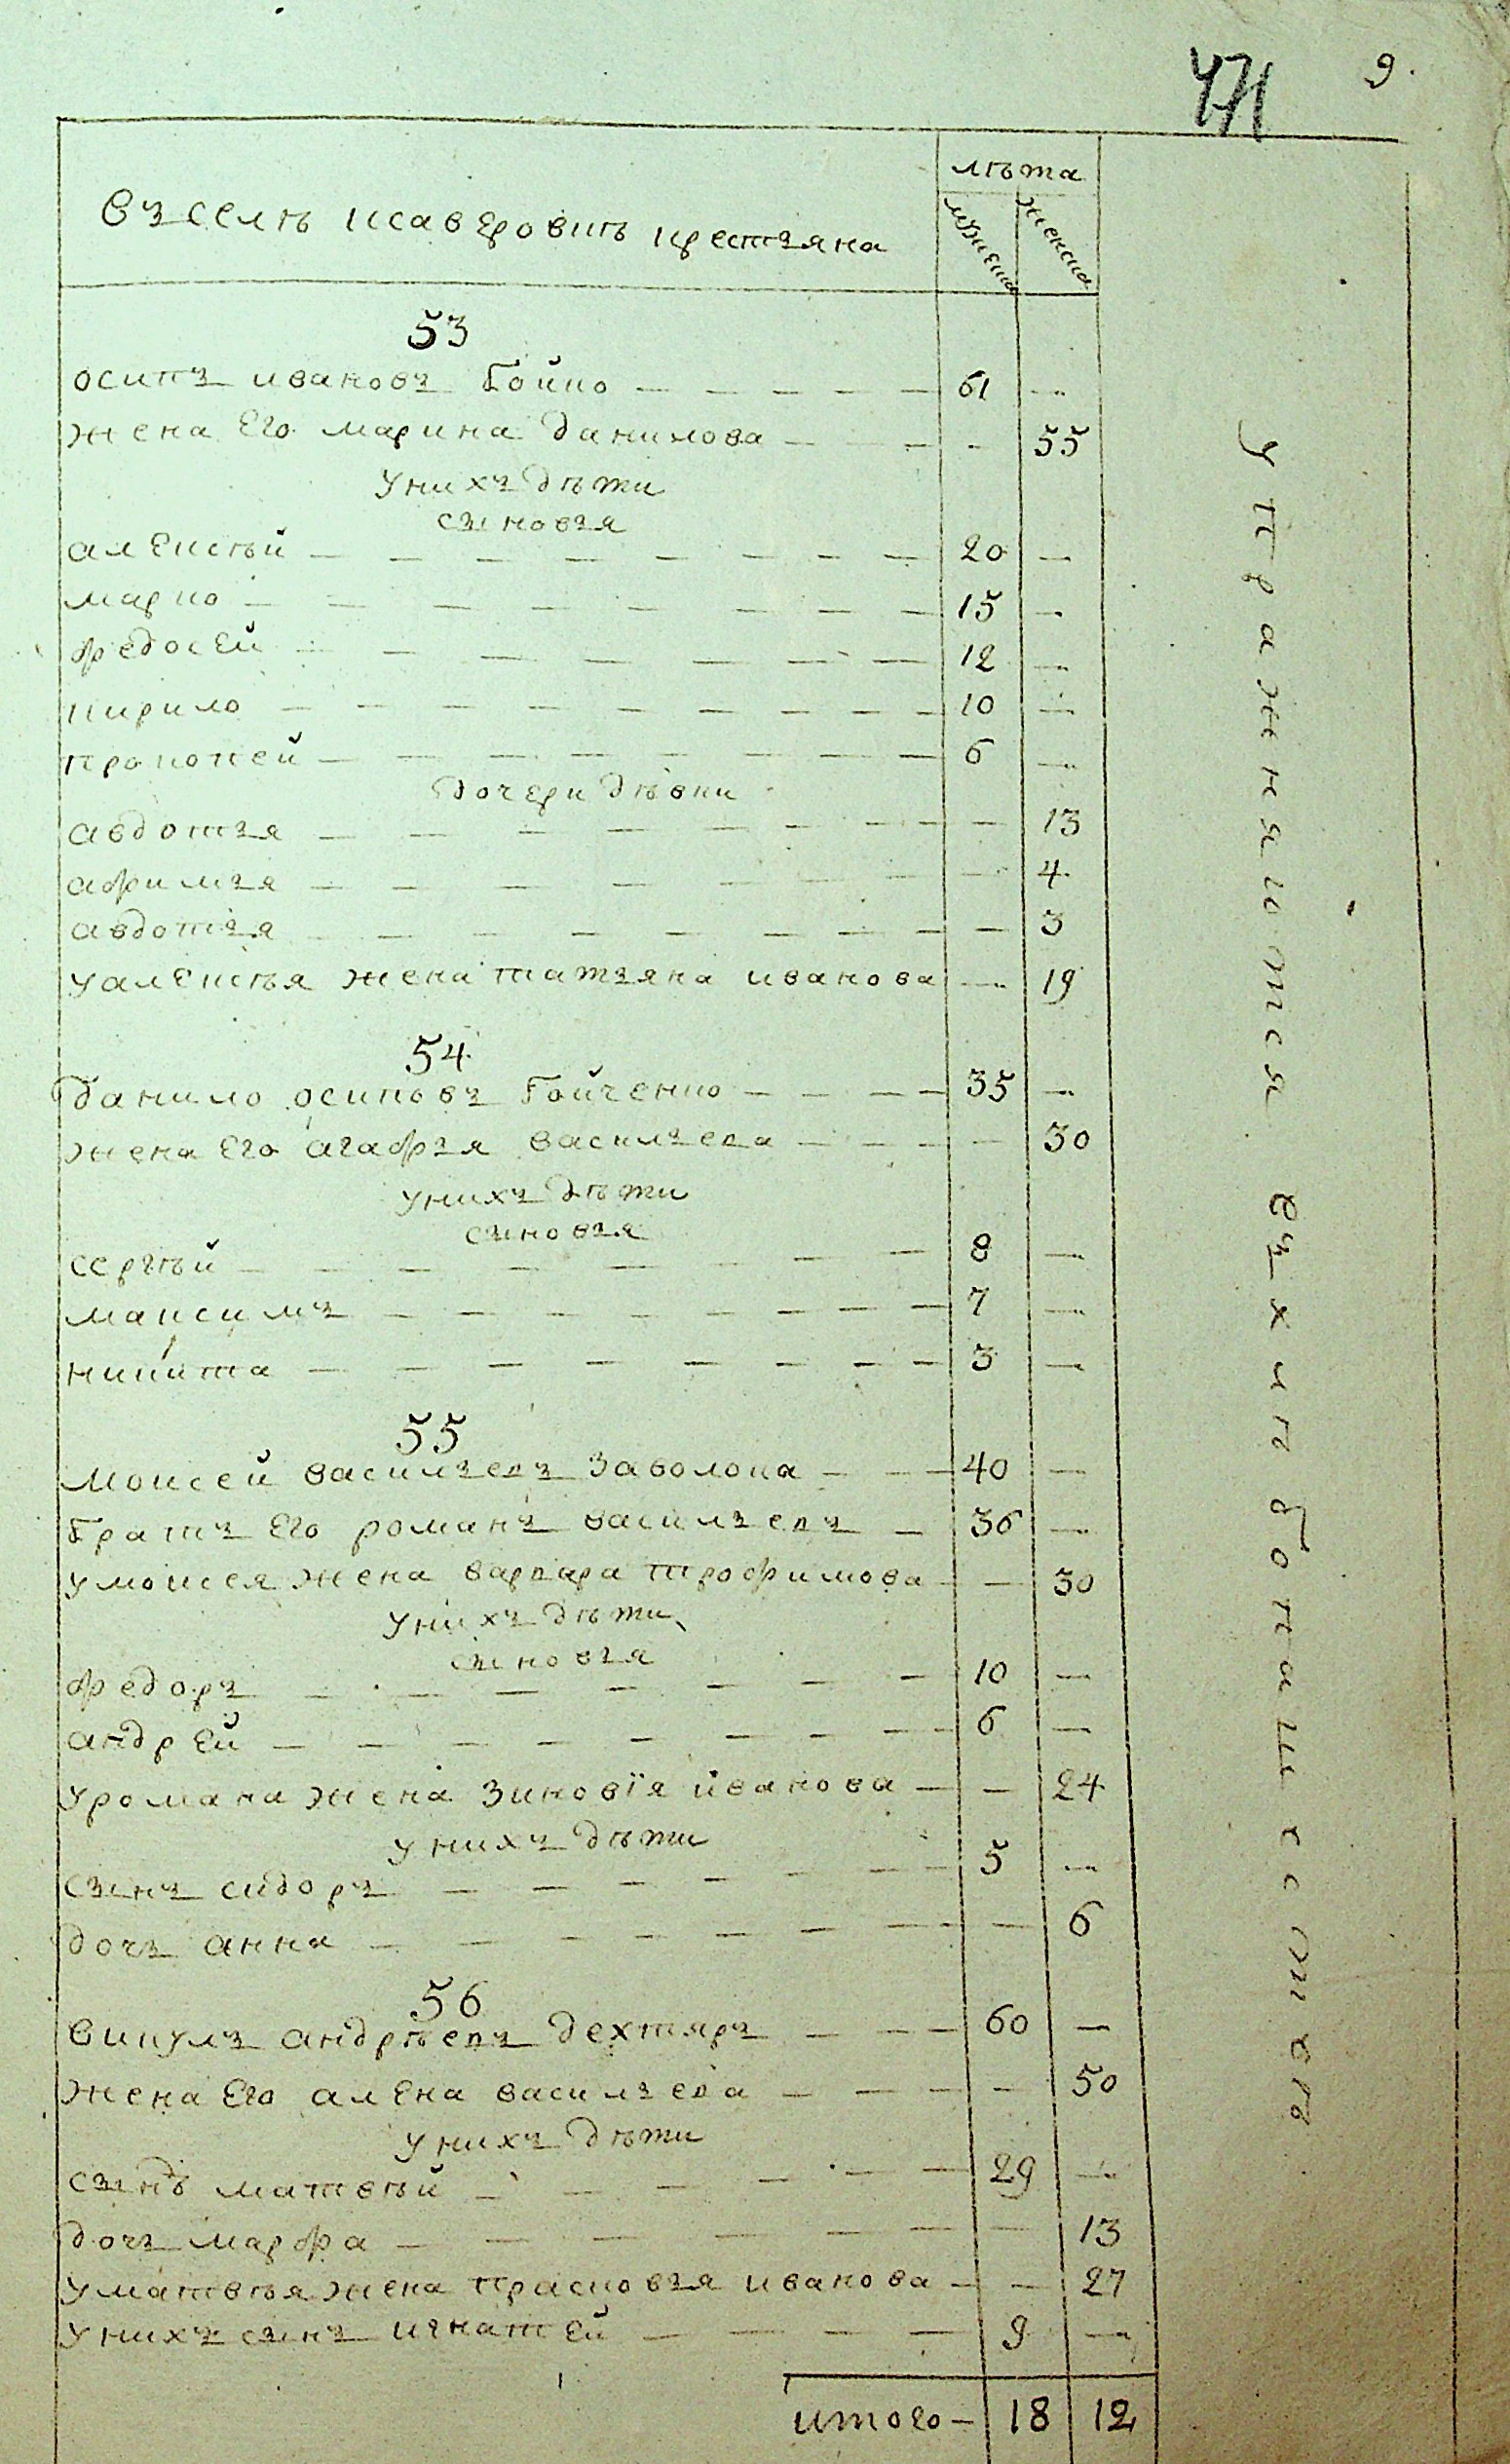 471 9.
въ селѣ ксаверовкѣ крестьяна
лѣта
мужеска
женска
53
осипъ ивановъ бойко — 61 —
жена его марина данилова — 55
у нихъ дѣти
сыновья
алексѣй — 20 —
марко — 15 —
федосей — 12 —
кирило — 10 —
прокопей — 6 —
дочери дѣвки
авдотья — 13
афимья — 4
авдотья — 3
у алексѣя жена татьяна иванова — 19
54
данило осиповъ бойченко — 35 —
жена его агафья васильева — 30
у нихъ дѣти
сыновья
сергѣй — 8 —
максимъ — 7 —
никита — 3 —
55
моисей васильевъ заволока — 40 —
братъ его романъ васильевъ — 36 —
у моисея жена варвара трофимова — 30
у нихъ дѣти
сыновья
федоръ — 10 —
андрей — 6 —
у романа жена зиновїя иванова — 24
у нихъ дѣти
сынъ сидоръ — 5 —
дочь анна — 6
56
викулъ андрѣевъ дехтяръ — 60 —
жена его алена васильева — 50
у нихъ дѣти
сынъ матвѣй — 29 —
дочь марфа — 13
у матвѣя жена прасковья иванова — 27
у нихъ сынъ игнатей — 9 —
итого — 18 12
упражняются въ хлебопашествѣ